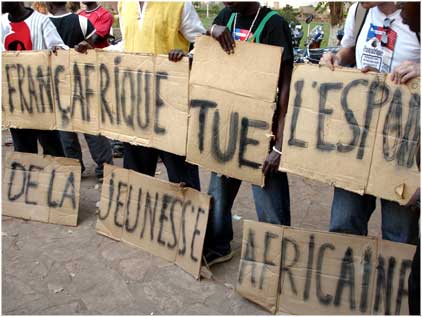 FRANÇAFRIQUE TUE L'ESPOI
DE LA JEUNESSE AFRICAINE